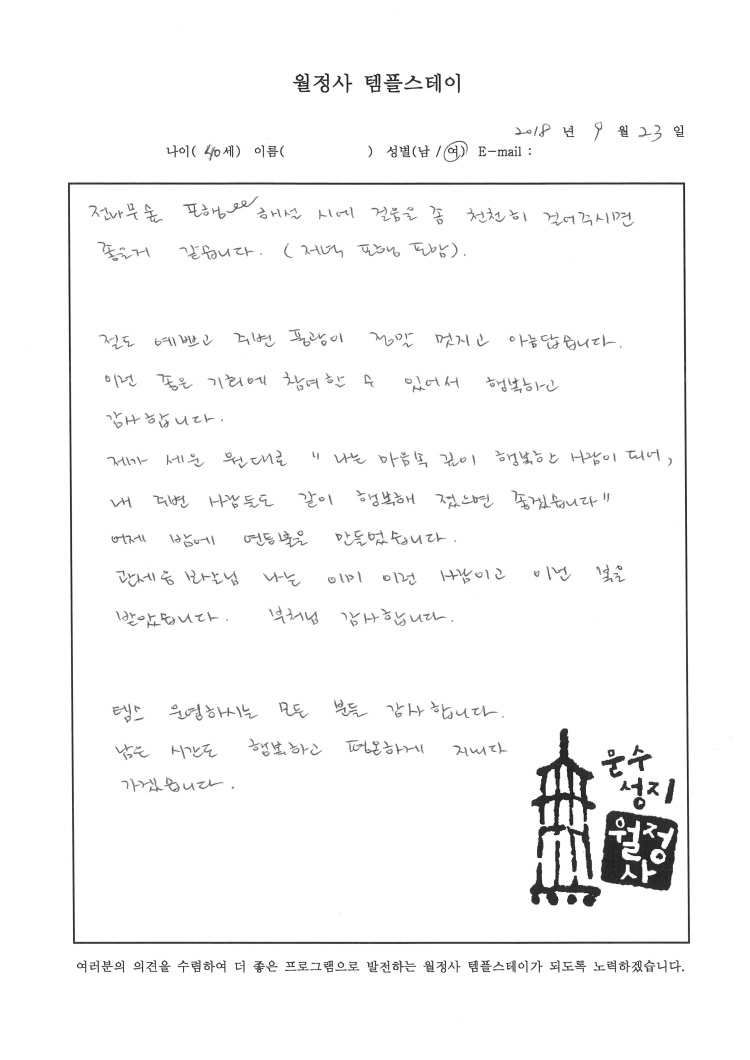 월정사 템플스테이
2018 년 9 월 23 일
나이( 40 세) 이름( ) 성별(남 / 여) E-mail :
전나무숲 포행 해설 시에 걸음을 좀 천천히 걸어주시면
좋을거 같습니다. ( 저녁 포행 포함).
절도 예쁘고 주변 풍광이 정말 멋지고 아름답습니다.
이런 좋은 기회에 참여할 수 있어서 행복하고
감사합니다.
제가 세운 원대로 " 나는 마음속 깊이 행복한 사람이 되어,
내 주변 사람들도 같이 행복해 졌으면 좋겠습니다"
어제 밤에 연등불을 만들었습니다.
관세음 보살님 나는 이미 이런 사람이고 이런 복을
받았습니다. 부처님 감사합니다.
템스 운영하시는 모든 분들 감사합니다.
남은 시간도 행복하고 평온하게 지내다
가겠습니다.
문수
성지
월정
사
여러분의 의견을 수렴하여 더 좋은 프로그램으로 발전하는 월정사 템플스테이가 되도록 노력하겠습니다.